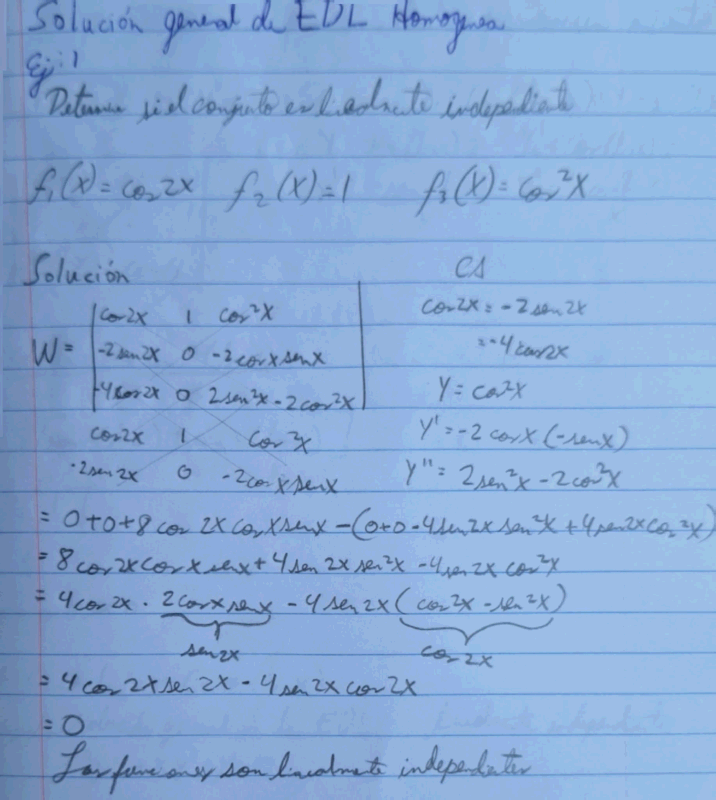 Solución general de EDL Homogenea
Ej: 1
Determine si el conjunto es linealmente independiente
f₁(x) = cos 2x f₂(x) = 1 f₃(x) = cos²x
Solución
W = | cos2x 1 cos²x |
| -2sen2x 0 -2cosxsenx |
| -4cos2x 0 2sen²x - 2cos²x |
cos2x 1 cos²x
-2sen2x 0 -2cosxsenx
CA
cos2x = -2sen2x
= -4cos2x
y = cos²x
y' = -2cosx(-senx)
y'' = 2sen²x - 2cos²x
= 0+0+8cos2xcosxsenx - (0+0-4sen2xsen²x + 4sen2xcos²x)
= 8cos2xcosxsenx + 4sen2xsen²x - 4sen2xcos²x
= 4cos2x · 2cosxsenx - 4sen2x(cos²x - sen²x)
sen2x cos2x
= 4cos2xsen2x - 4sen2xcos2x
= 0
Las funciones son linealmente independientes